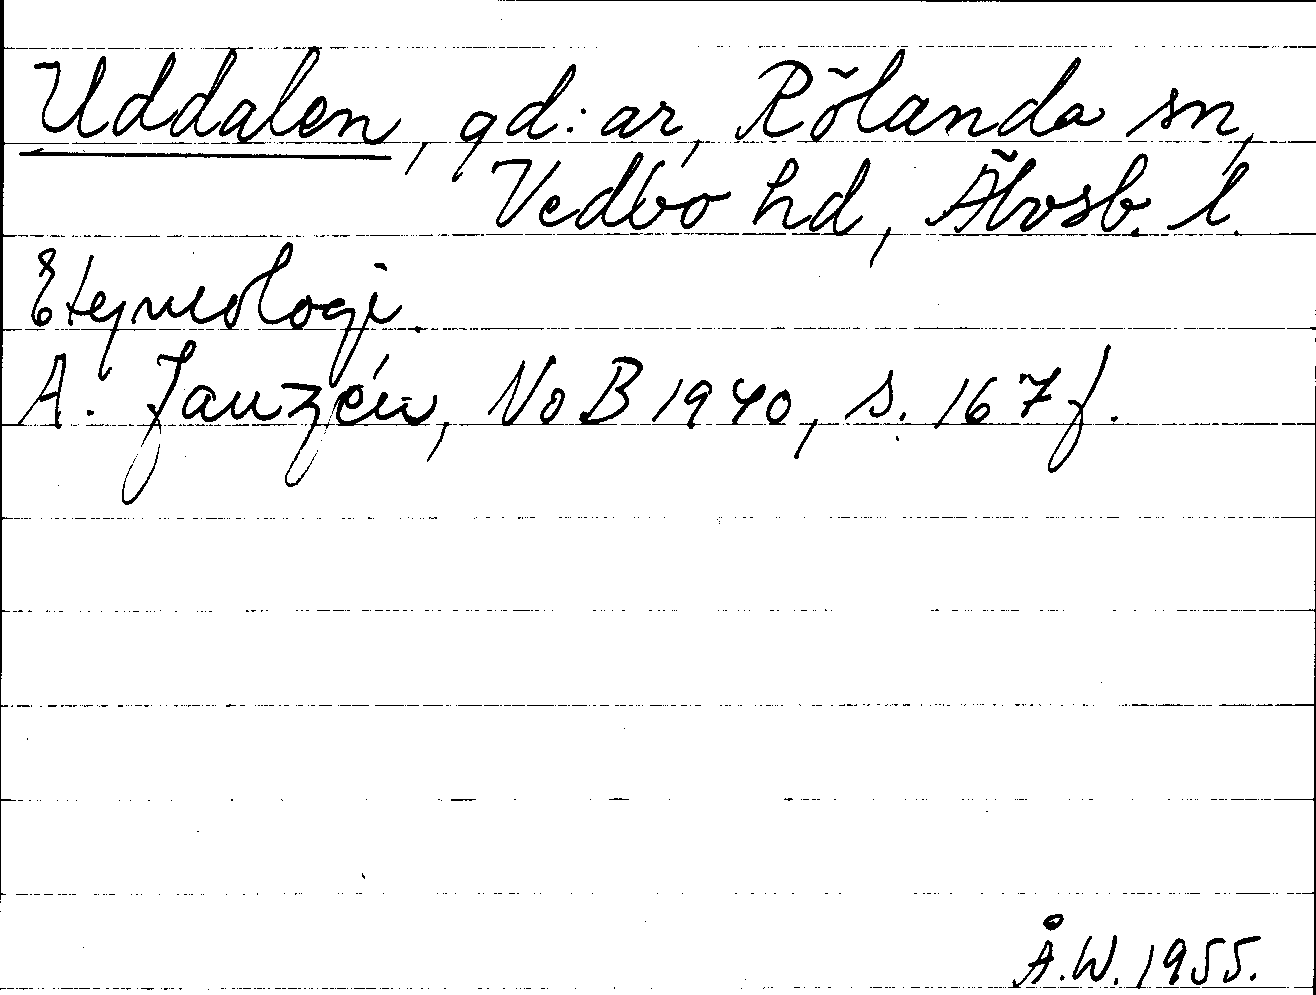 Uddalen, gd:ar, Rölanda sn,
Vedbo hd, Älvsb. l.
Etymologi.
A. Janzén, NoB 1940, s. 167 f.
Å.W. 1955.